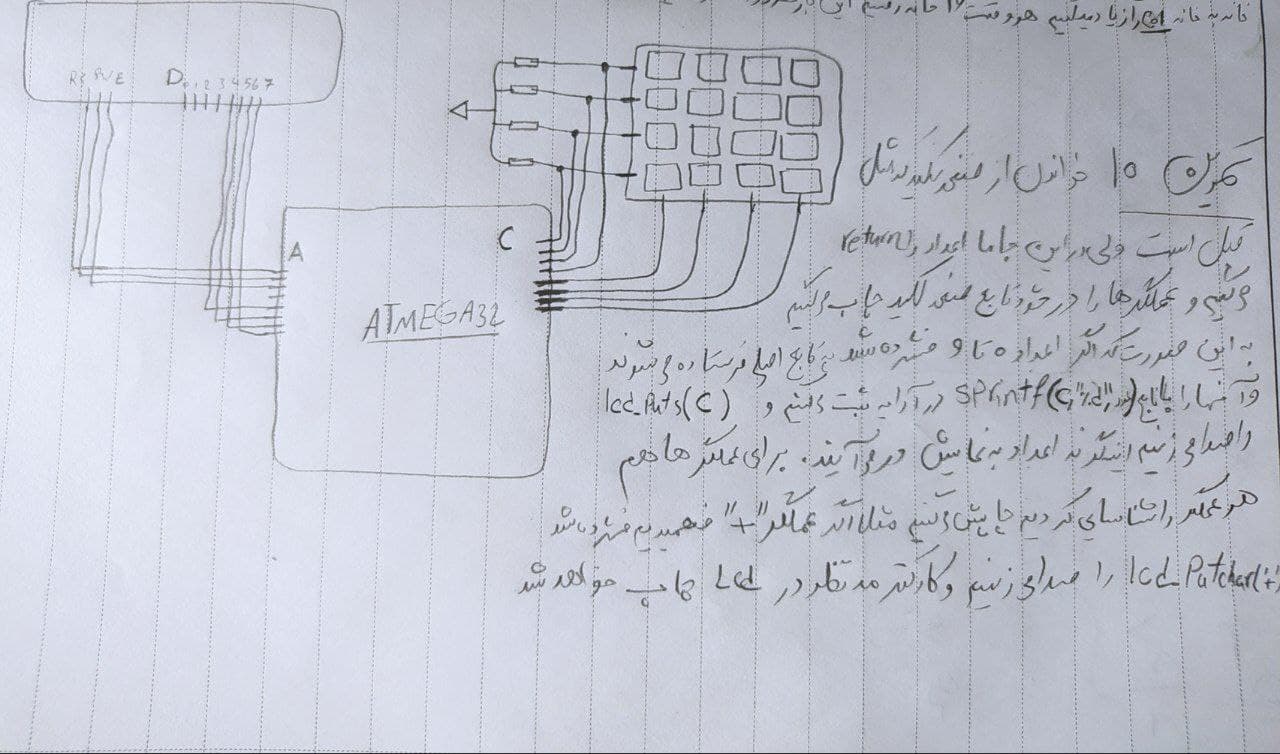 خانه به خانه lcd را زیاد میکنیم هر وقت 16 خانه رفتیم این
RS R/W E D 0 1 2 3 4 5 6 7
A
C
ATMEGA32
تمرین 10 خواندن از صفحه کلید مثل
قبل است ولی در این جا ما اعداد را return
می کنیم و عملگرها را در خود تابع صفحه کلید چاپ می کنیم
به این صورت که اگر اعداد 0 تا 9 فشرده شد به تابع اصلی فرستاده می شوند
و آنها را با تابع sprintf(c,"%d", در آرایه ثبت میکنیم و lcd_Puts(C)
را صدا می زنیم اینگونه اعداد به نمایش در می آیند. برای عملگر ها هم
هر عملگر را شناسایی کردیم چاپش می کنیم مثلا اگر عملگر "+" فهمیدیم فشرده شد
lcd_Putchar('+' را صدا می زنیم و کاراکتر مد نظر در Lcd چاپ خواهد شد